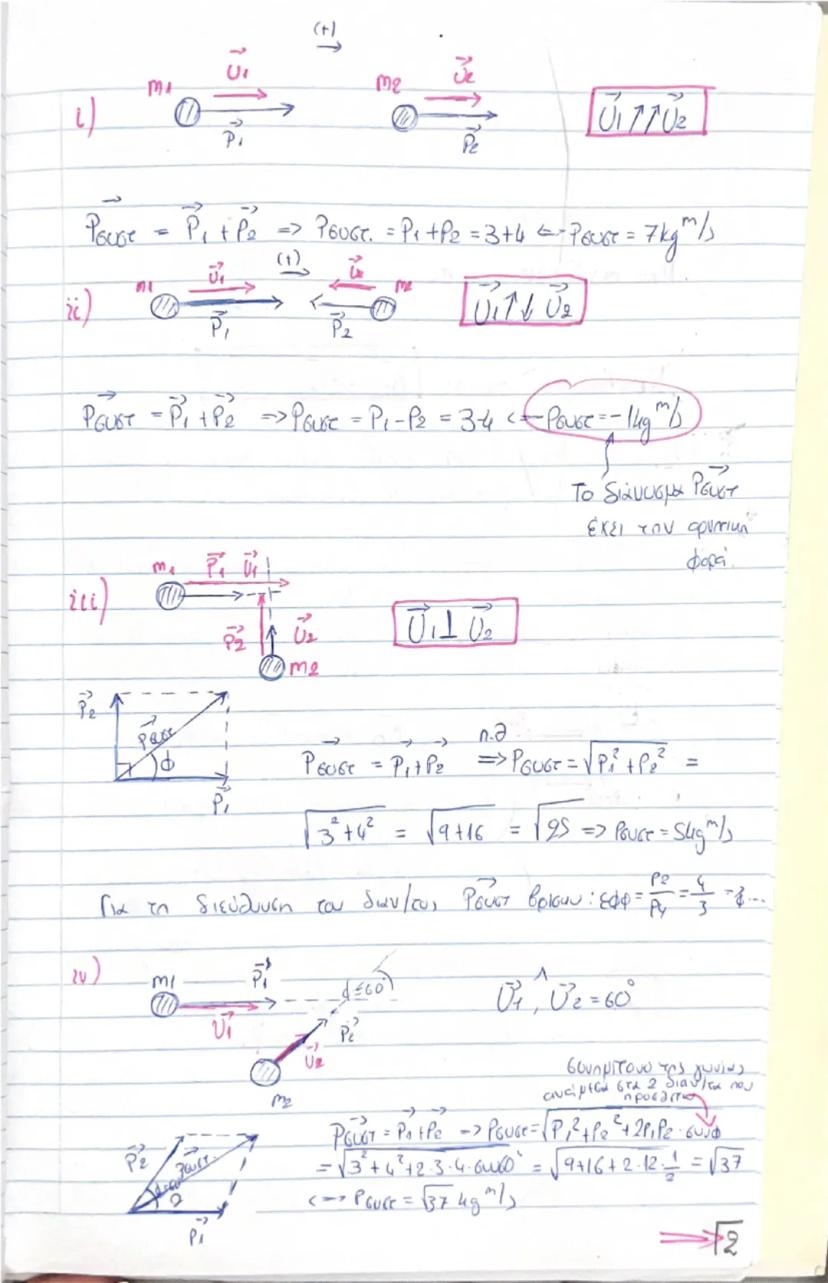 (+)
i) m1 U⃗1 P⃗1 m2 U⃗2 P⃗2 U⃗1 ↑↑ U⃗2
P⃗συστ = P⃗1 + P⃗2 => Pσυστ. = P1 + P2 = 3+4 <=> Pσυστ = 7kg m/s
(+)
ii) m1 U⃗1 P⃗1 U⃗2 m2 P⃗2 U⃗1 ↑↓ U⃗2
P⃗συστ = P⃗1 + P⃗2 => Pσυστ = P1 - P2 = 3-4 <=> Pσυστ = -1kg m/s
Το διάνυσμα P⃗συστ
έχει την αρνητική
φορά.
iii) m1 P⃗1 U⃗1 P⃗2 U⃗2 m2 U⃗1 ⊥ U⃗2
P⃗2 P⃗συστ φ P⃗1
P⃗συστ = P⃗1 + P⃗2 =>(π.θ) Pσυστ = √(P1² + P2²) =
√(3²+4²) = √(9+16) = √25 => Pσυστ = 5kg m/s
Για τη διεύθυνση του διαν/τος P⃗συστ : εφφ = P2/P1 = 4/3 = ...
iv) m1 P⃗1 U⃗1 φ=60° P⃗2 U⃗2 m2 U⃗1 ^, U⃗2 = 60°
συνημίτονο της γωνίας
ανάμεσα στα 2 διαν/τα που
P⃗2 P⃗συστ P⃗1
P⃗συστ = P⃗1 + P⃗2 => Pσυστ = √(P1² + P2² + 2P1P2·συνφ)
= √(3²+4²+2·3·4·συν60°) = √(9+16+2·12·1/2) = √37
<=> Pσυστ = √37 kg m/s
=> √2